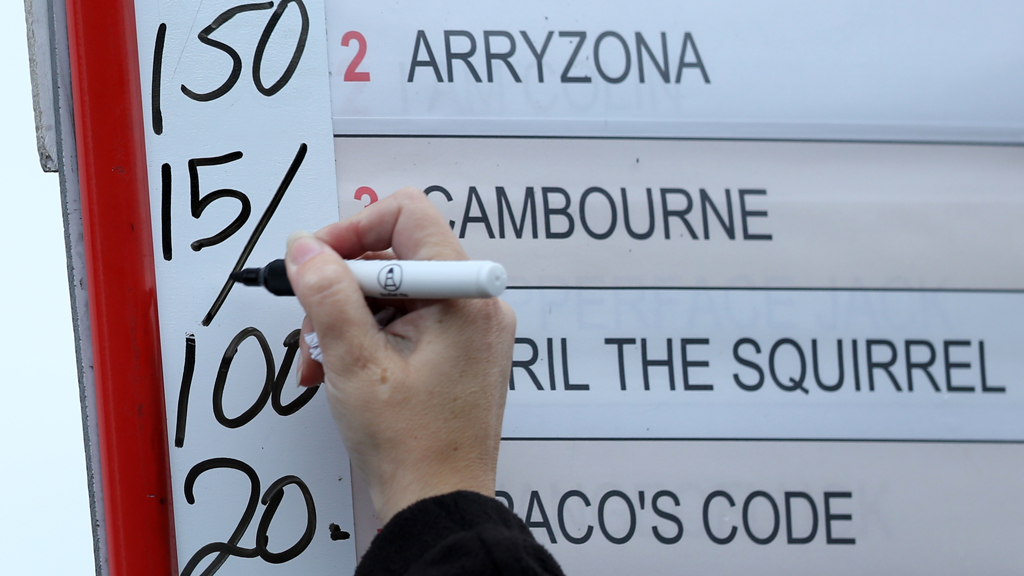 150 2 ARRYZONA
15/ 3 CAMBOURNE
100 RIL THE SQUIRREL
20 RACO'S CODE